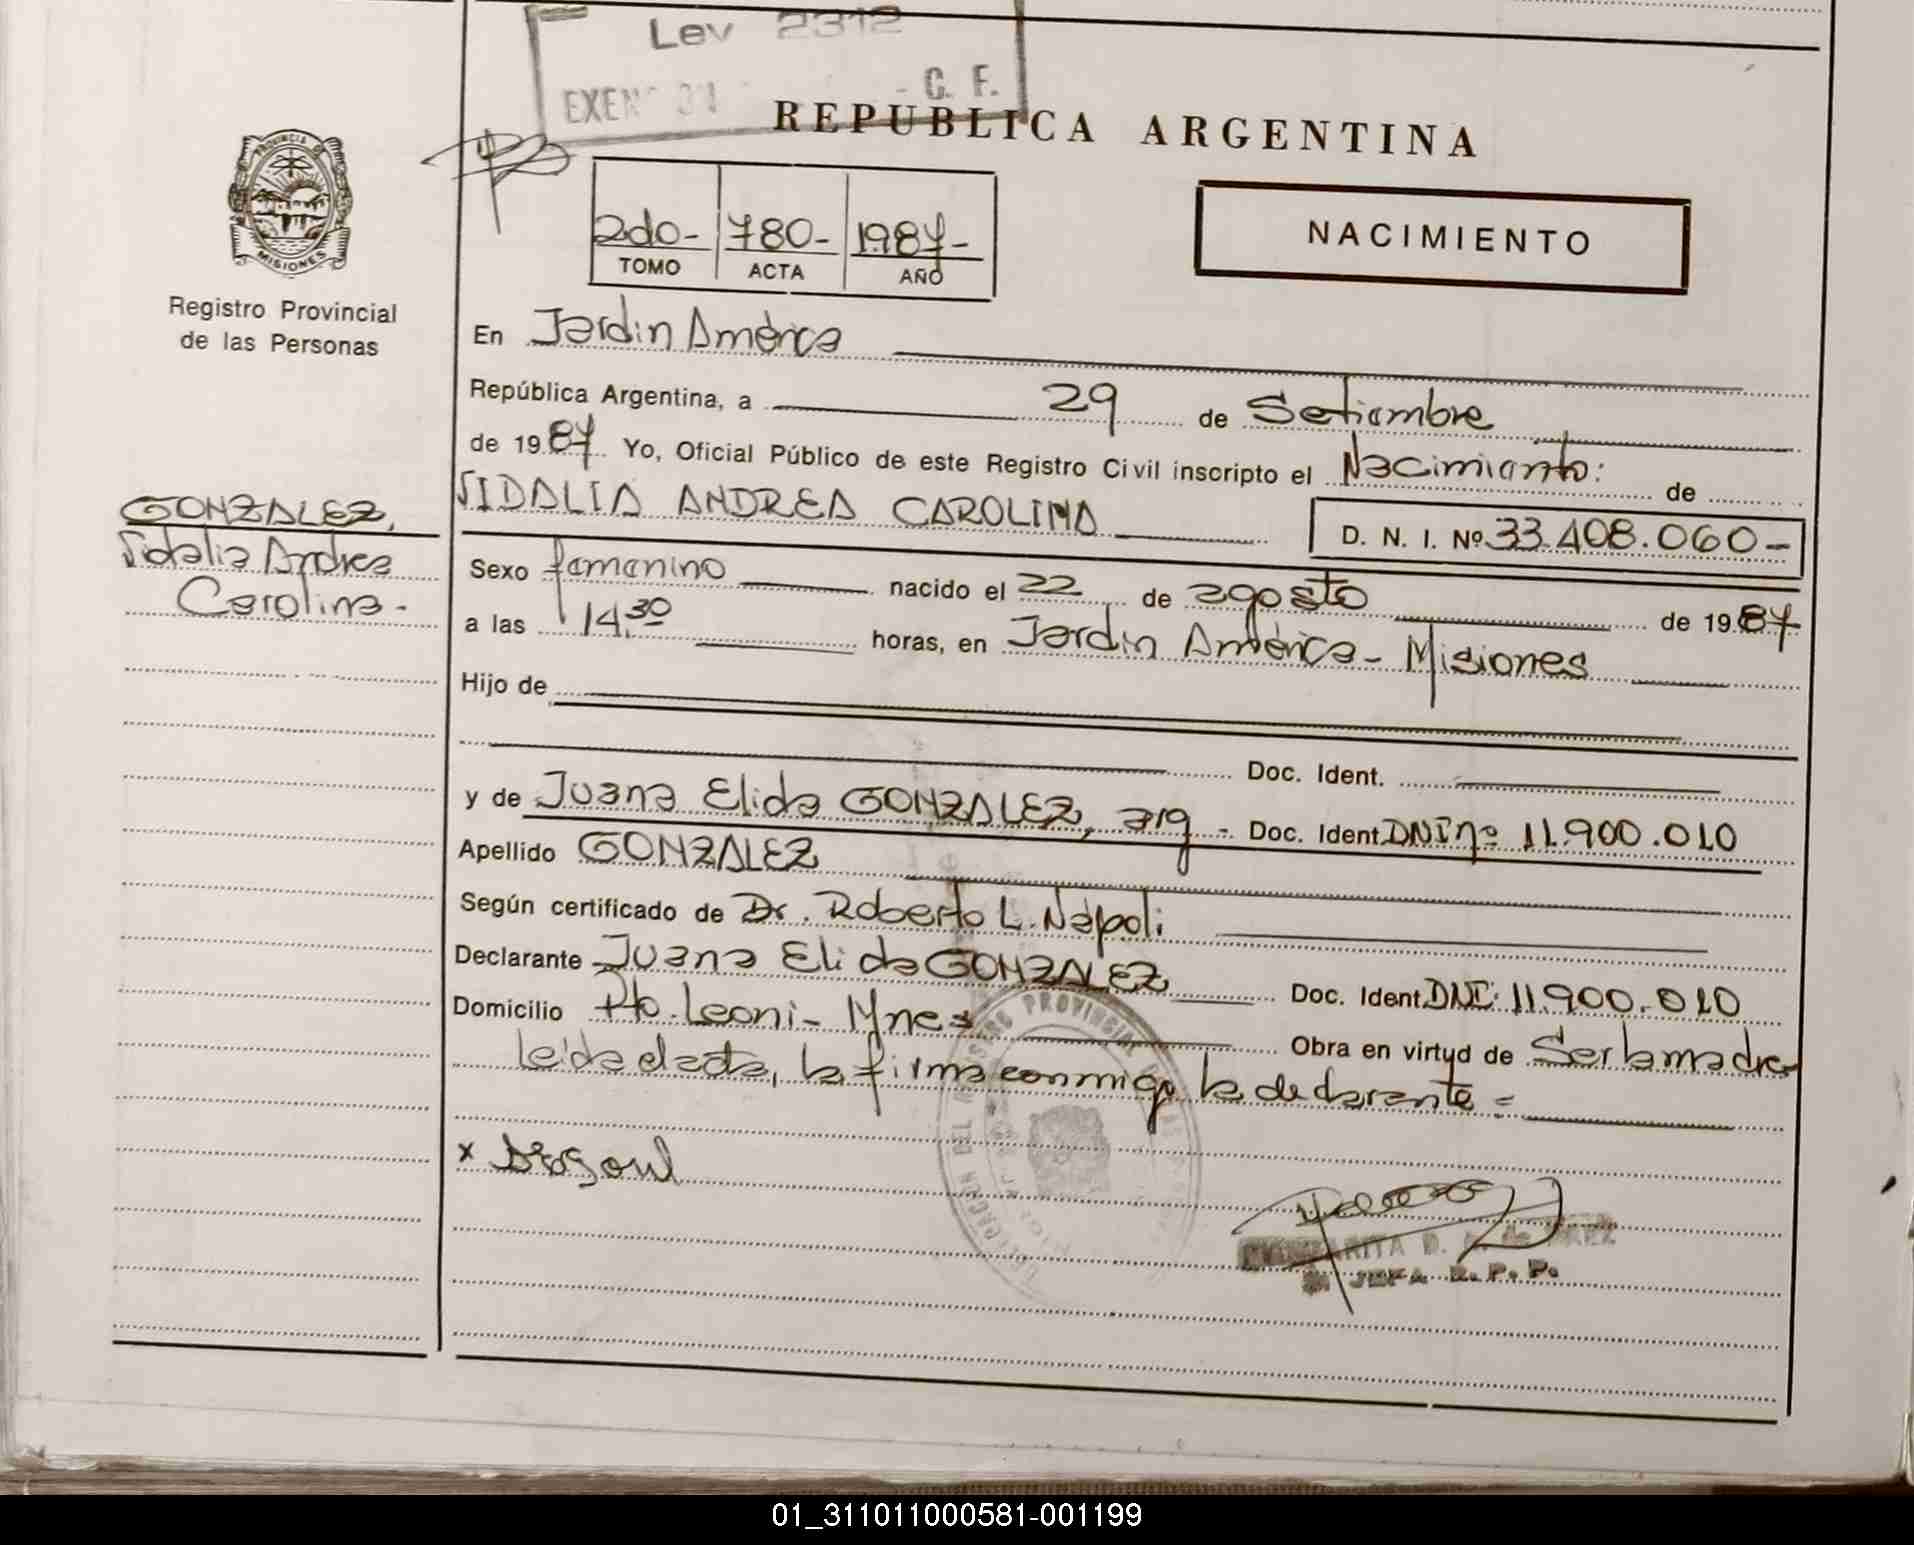 Ley 2312
EXEN
C. F.
REPUBLICA ARGENTINA
PROVINCIA DE
MISIONES
Registro Provincial
de las Personas
2do- 780- 1987-
TOMO ACTA AÑO
NACIMIENTO
En Jardin América
República Argentina, a 29 de Setiembre
de 1987 Yo, Oficial Público de este Registro Civil inscripto el Nacimiento: de
GONZALEZ,
Sidalia Andrea
Carolina.-
SIDALIA ANDREA CAROLINA D. N. I. Nº 33.408.060-
Sexo femenino nacido el 22 de agosto de 1987
a las 14,30 horas, en Jardin América- Misiones
Hijo de
Doc. Ident.
y de Juana Elida GONZALEZ, arg - Doc. Ident. DNI nº 11.900.010
Apellido GONZALEZ
Según certificado de Dr. Roberto L. Nápoli
Declarante Juana Elida GONZALEZ Doc. Ident. DNI: 11.900.010
Domicilio Pto. Leoni- Mnes Obra en virtud de Ser la madre
Leida el acta, la firma conmigo la declarante =
x
REGISTRO PROVINCIAL DE LAS PERSONAS
JEFA R. P. P.
01_311011000581-001199